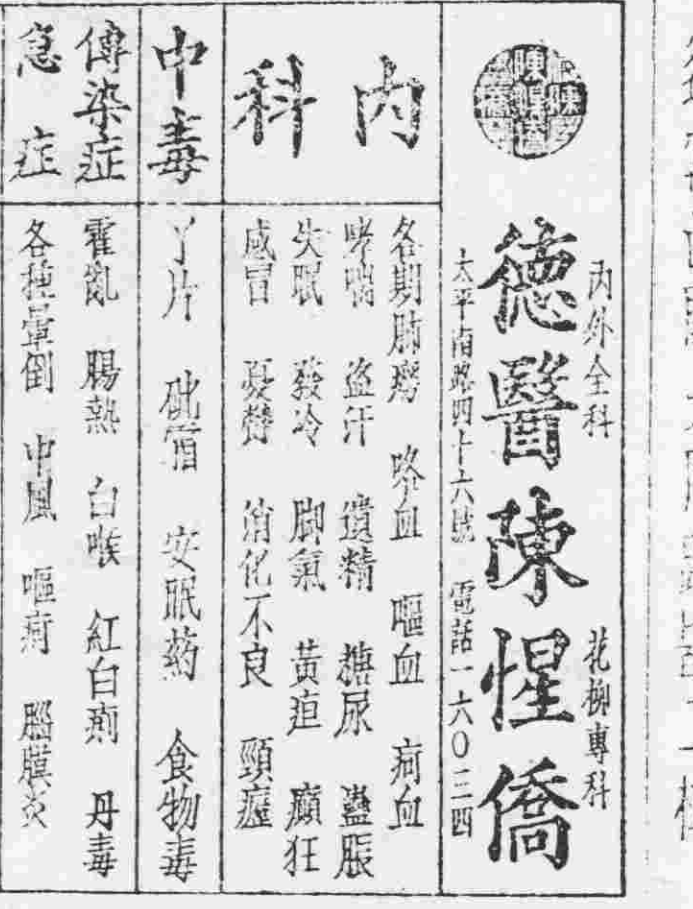 陳惺僑
內外全科
花柳專科
德醫陳惺僑
太平南路四十六號 電話一六〇三四
內科
各期肺癆 咯血 嘔血 疴血
哮喘 盜汗 遺精 糖尿 蠱脹
失眠 發冷 脚氣 黃疸 癲狂
感冒 憂鬱 消化不良 頸癧
中毒
丫片 砒霜 安眠葯 食物毒
傳染症
急症
霍亂 腸熱 白喉 紅白痢 丹毒
各種暈倒 中風 嘔疴 腦膜炎